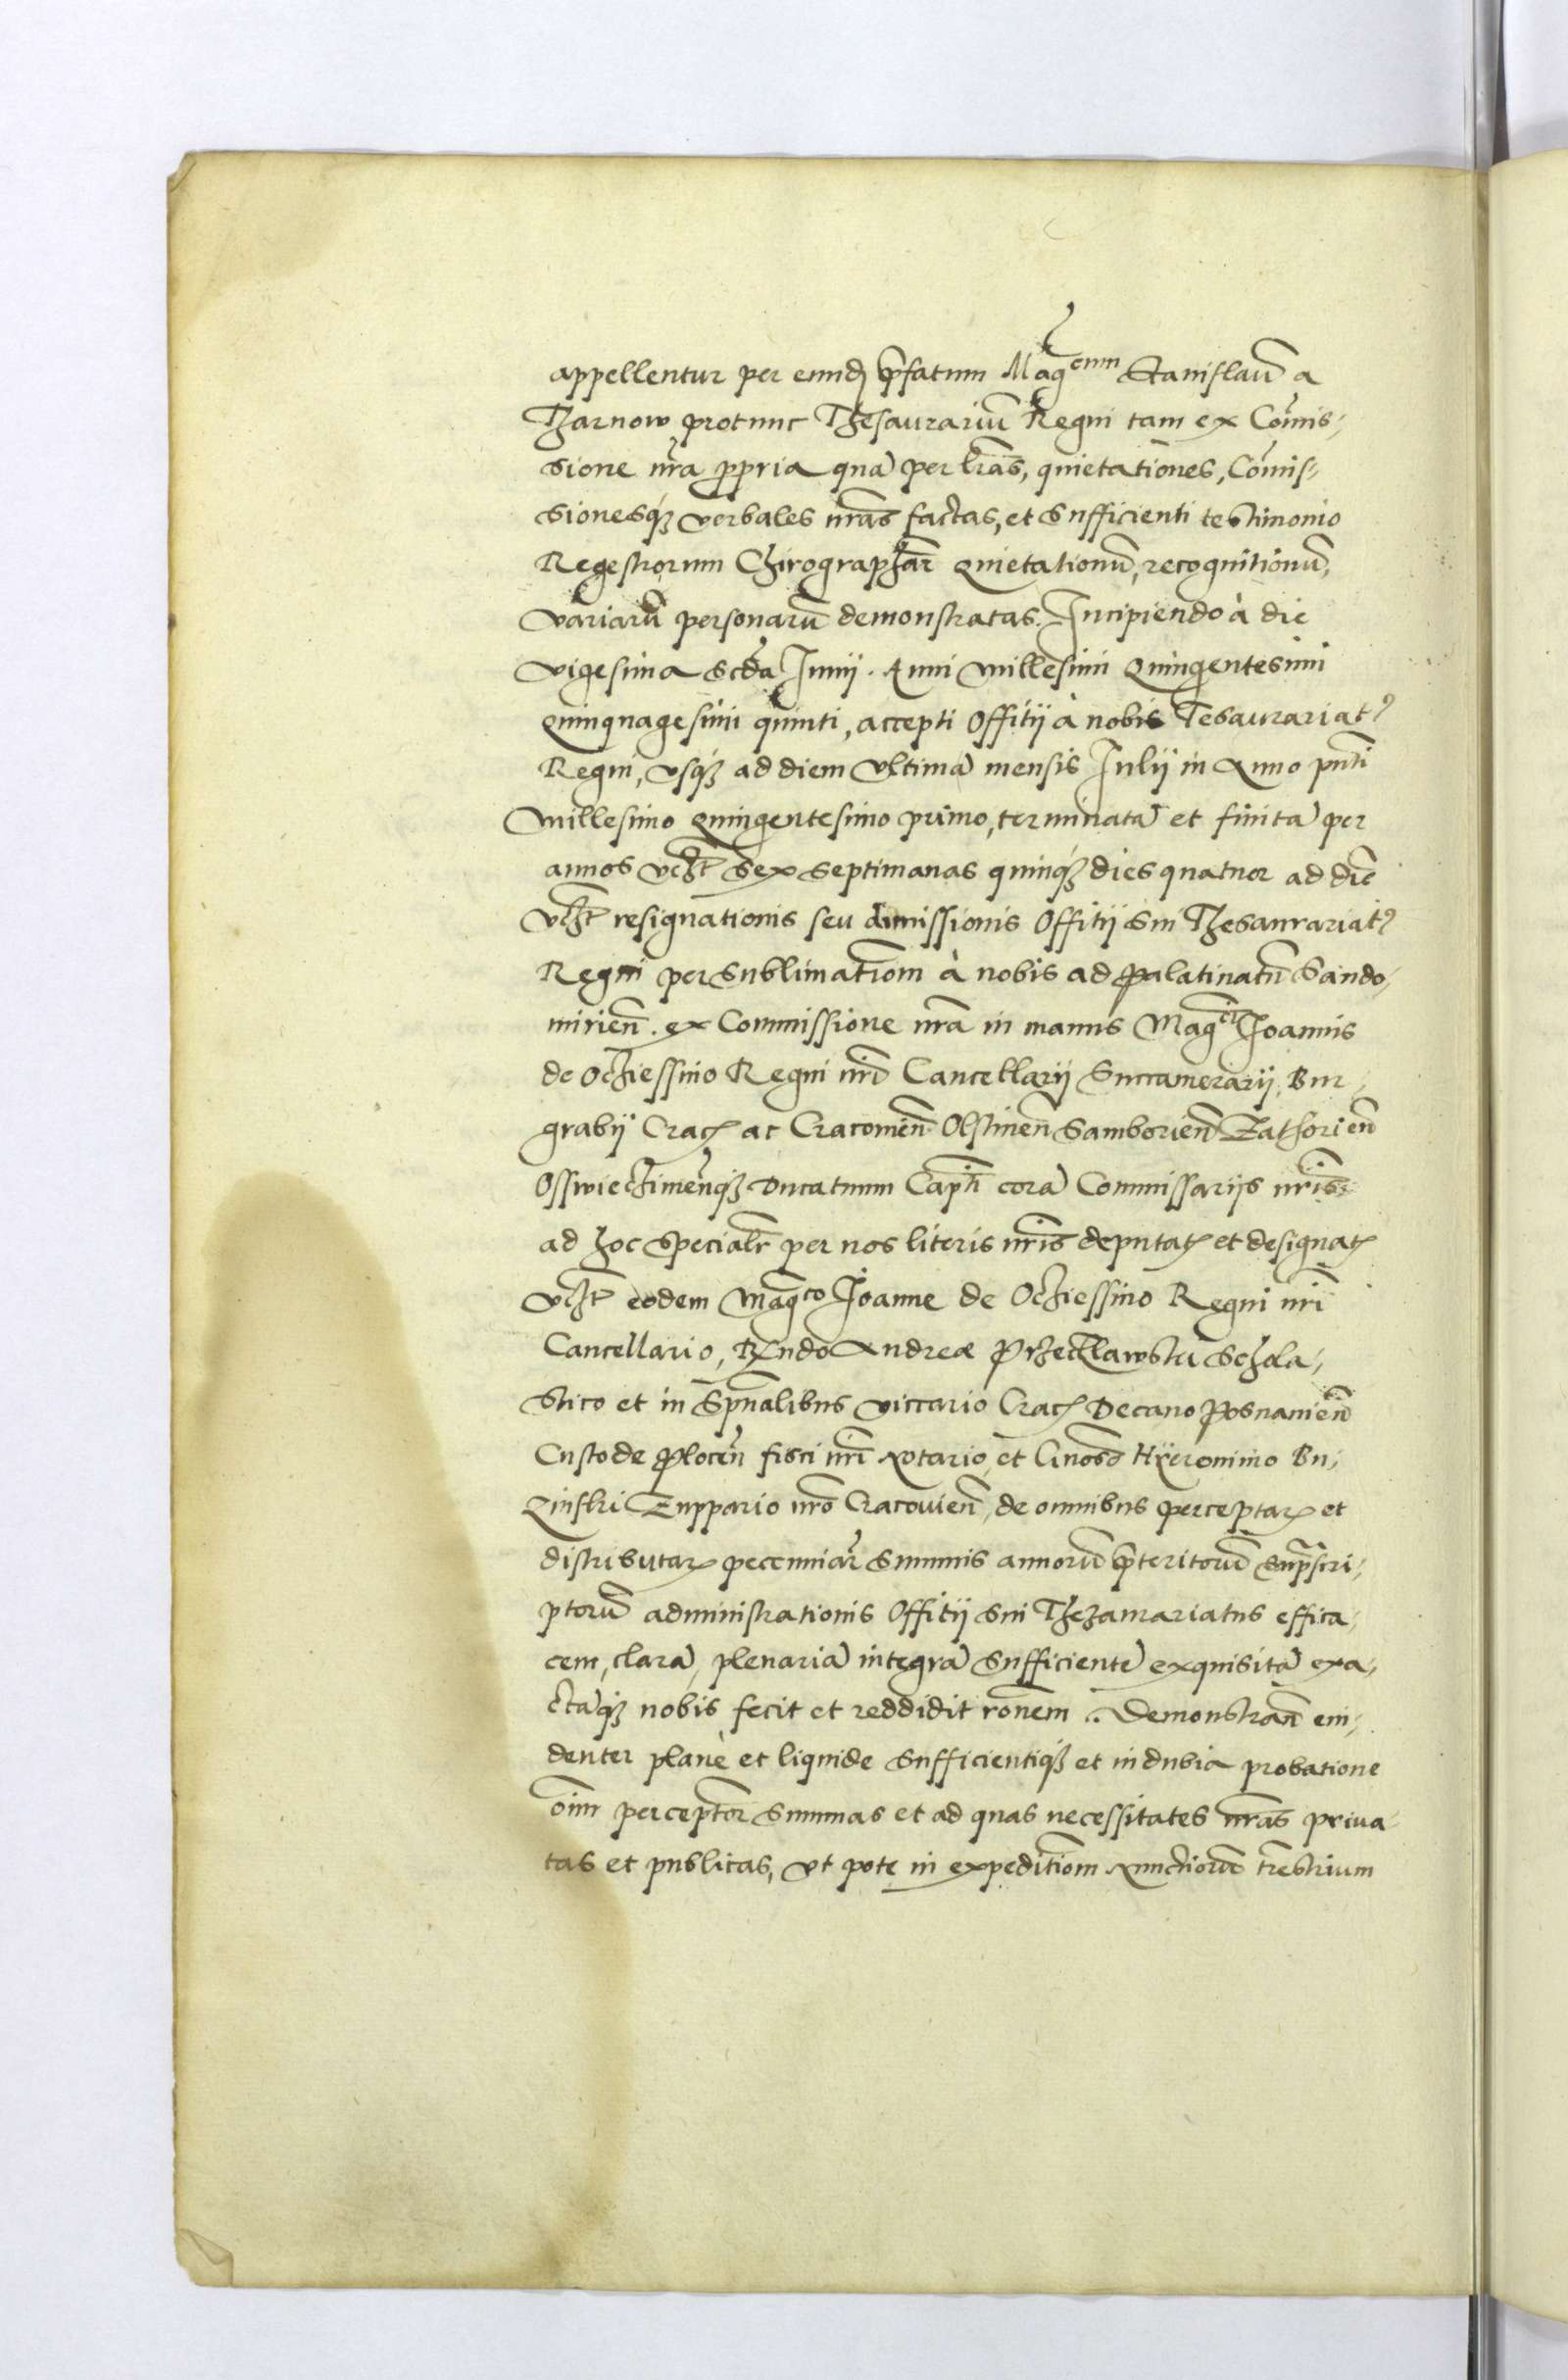 appellentur per eund. p̄fatum Mag̃cum Stanislaũ a
Tharnow protunc Thesaurariũ Regni tam ex Com̃is,
sione nr̃a propria quã per lr̃as, quietationes, Com̃is,
sionesq́ꝫ verbales nr̃as factas, et sufficienti testimonio
Regestrorum Chirographar̃ Quietationũ, recognitionũ,
variarũ personarũ demonstratas. Incipiendo à die
vigesima scd̃a Junij. Anni Millesimi Quingentesimi
Quinquagesimi quinti, accepti Offitij à nobis Tesaurariatꝰ
Regni, vsq́ꝫ ad diem Vltimã mensis Julij in Anno pñti
Millesimo Quingentesimo primo, terminatã et finitã per
annos vꝫ̃ sex septimanas quinq́ꝫ dies quatuor ad diẽ
vꝫ̃ resignationis seu dimissionis Offitij sui Thesaurariatꝰ
Regni per sublimatiõm à nobis ad Palatinatũ Sando,
mirieñ. ex Commissione nr̃a in manus Mag̃ci Joannis
de Ochiessino Regni nr̃i Cancellarij Succamerarij, Bur,
grabij Crac̃ ac Cracouieñ Olstineñ Samborieñ Zathorieñ
Osswiechimeñq́ꝫ Ducatuum Capñ corã Commissarijs nr̃is
ad hoc specialr̃ per nos literis nr̃is deputat̃ et designat̃
vꝫ̃ eodem Mag̃co Joanne de Ochiessino Regni nr̃i
Cancellario, Rñdo Andreæ Przeclawski Schola,
stico et in Spũalibus Viccario Crac̃ Decano Posnanieñ
Custode Ploceñ fisci nr̃i Notario, et Gñoso Hyeronimo Bu,
zinski Zuppario nr̃o Cracouieñ, de omnibus perceptaꝝ et
distributaꝝ pecuniar̃ summis annorũ p̄teritorũ sup̃scri,
ptorũ administrationis Offitij sui Thezaurariatus effica,
cem, clarã, plenariã integrã sufficientẽ exquisitã exa,
ctãq́ꝫ nobis fecit et reddidit rõnem. Demonstrañ eui,
denter planè et liquide sufficientiq́ꝫ et indubia probatione
oĩm perceptor̃ summas et ad quas necessitates nr̃as priua,
tas et publicas, vt pote in expeditiõm Nunctiorũ tr̃estrium